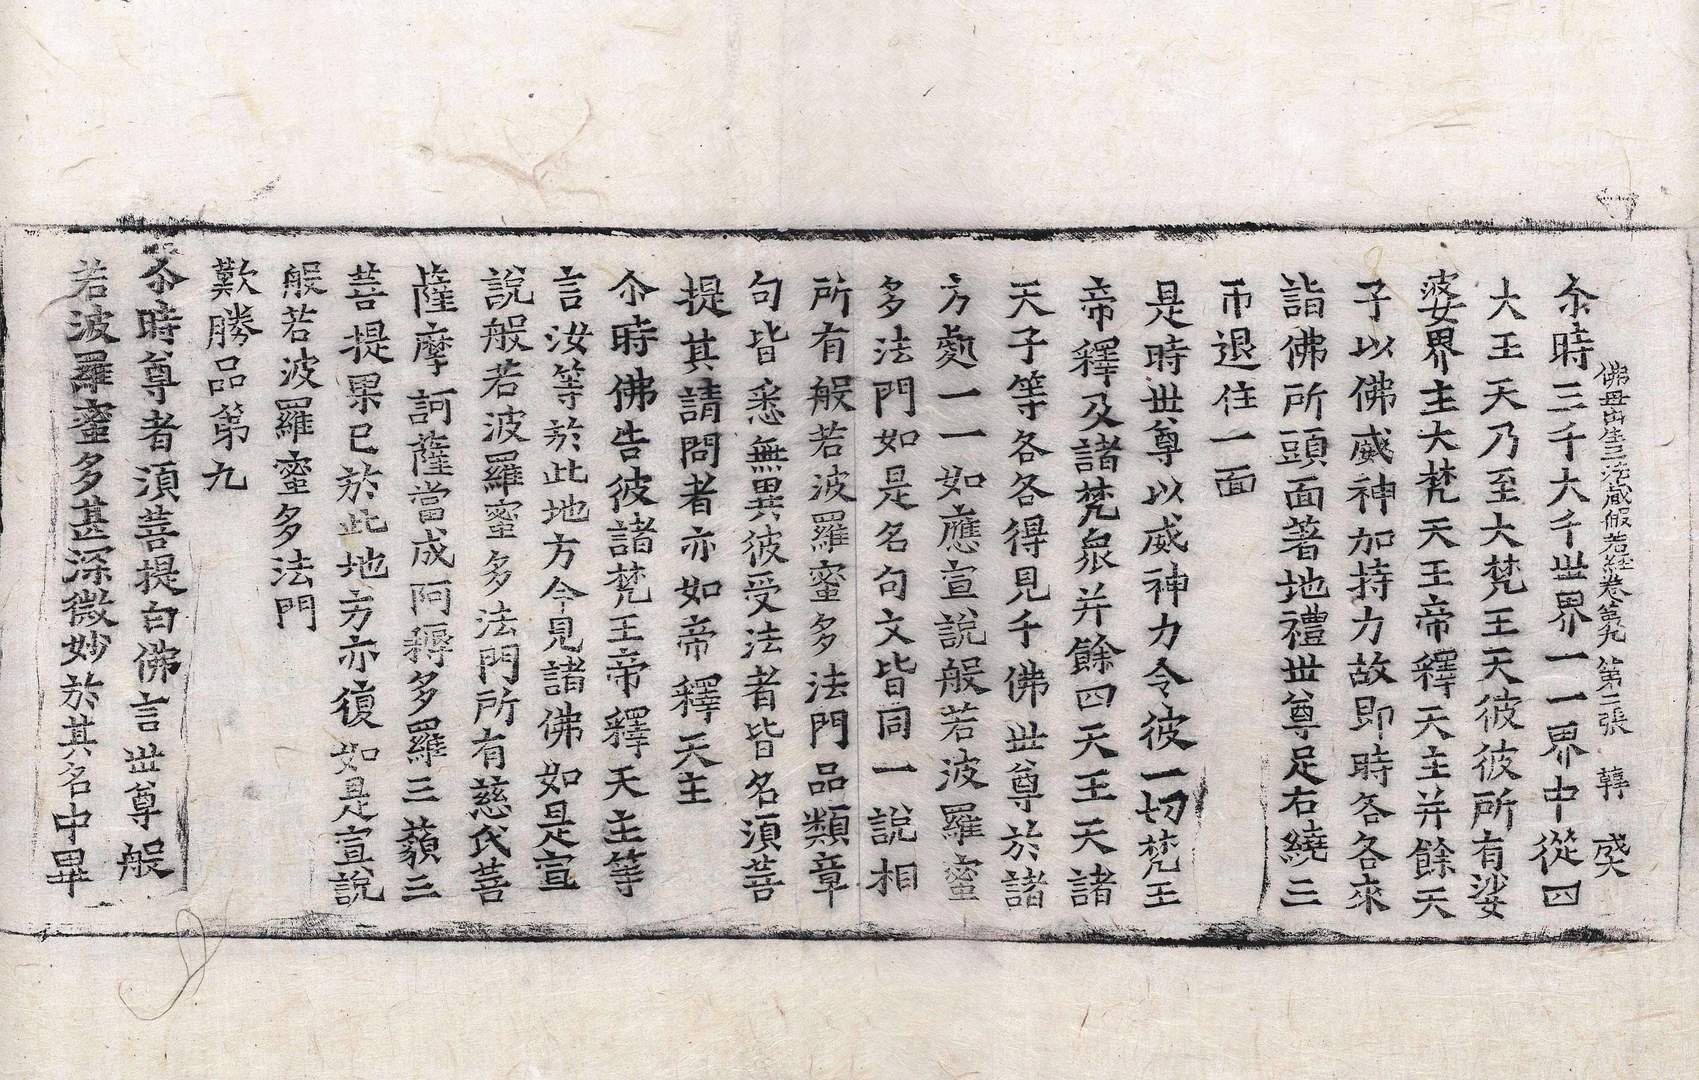 佛母出生三法藏般若經卷第九　第二張　鞾　成大
尒時三千大千世界一一界中從四
大王天乃至大梵王天彼彼所有娑
婆界主大梵天王帝釋天主并餘天
子以佛威神加持力故即時各各來
詣佛所頭面著地禮世尊足右繞三
帀退住一面
是時世尊以威神力令彼一切梵王
帝釋及諸梵衆并餘四天王天諸
天子等各各得見千佛世尊於諸
方處一一如應宣說般若波羅蜜
多法門如是名句文皆同一說相
所有般若波羅蜜多法門品類章
句皆悉無異彼受法者皆名須菩
提其請問者亦如帝釋天主
尒時佛告彼諸梵王帝釋天主等
言汝等於此地方今見諸佛如是宣
說般若波羅蜜多法門所有慈氏菩
薩摩訶薩當成阿耨多羅三藐三
菩提果已於此地方亦復如是宣說
般若波羅蜜多法門
歎勝品第九
尒時尊者須菩提白佛言世尊般
若波羅蜜多甚深微妙於其名中畢